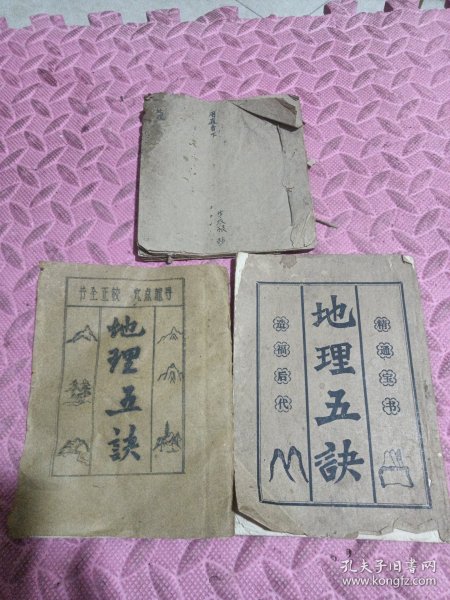 尋龍点穴 校正全竹
地理五訣
精通宝书
地理五訣
造福后代
孔夫子旧书网
www.kongfz.com